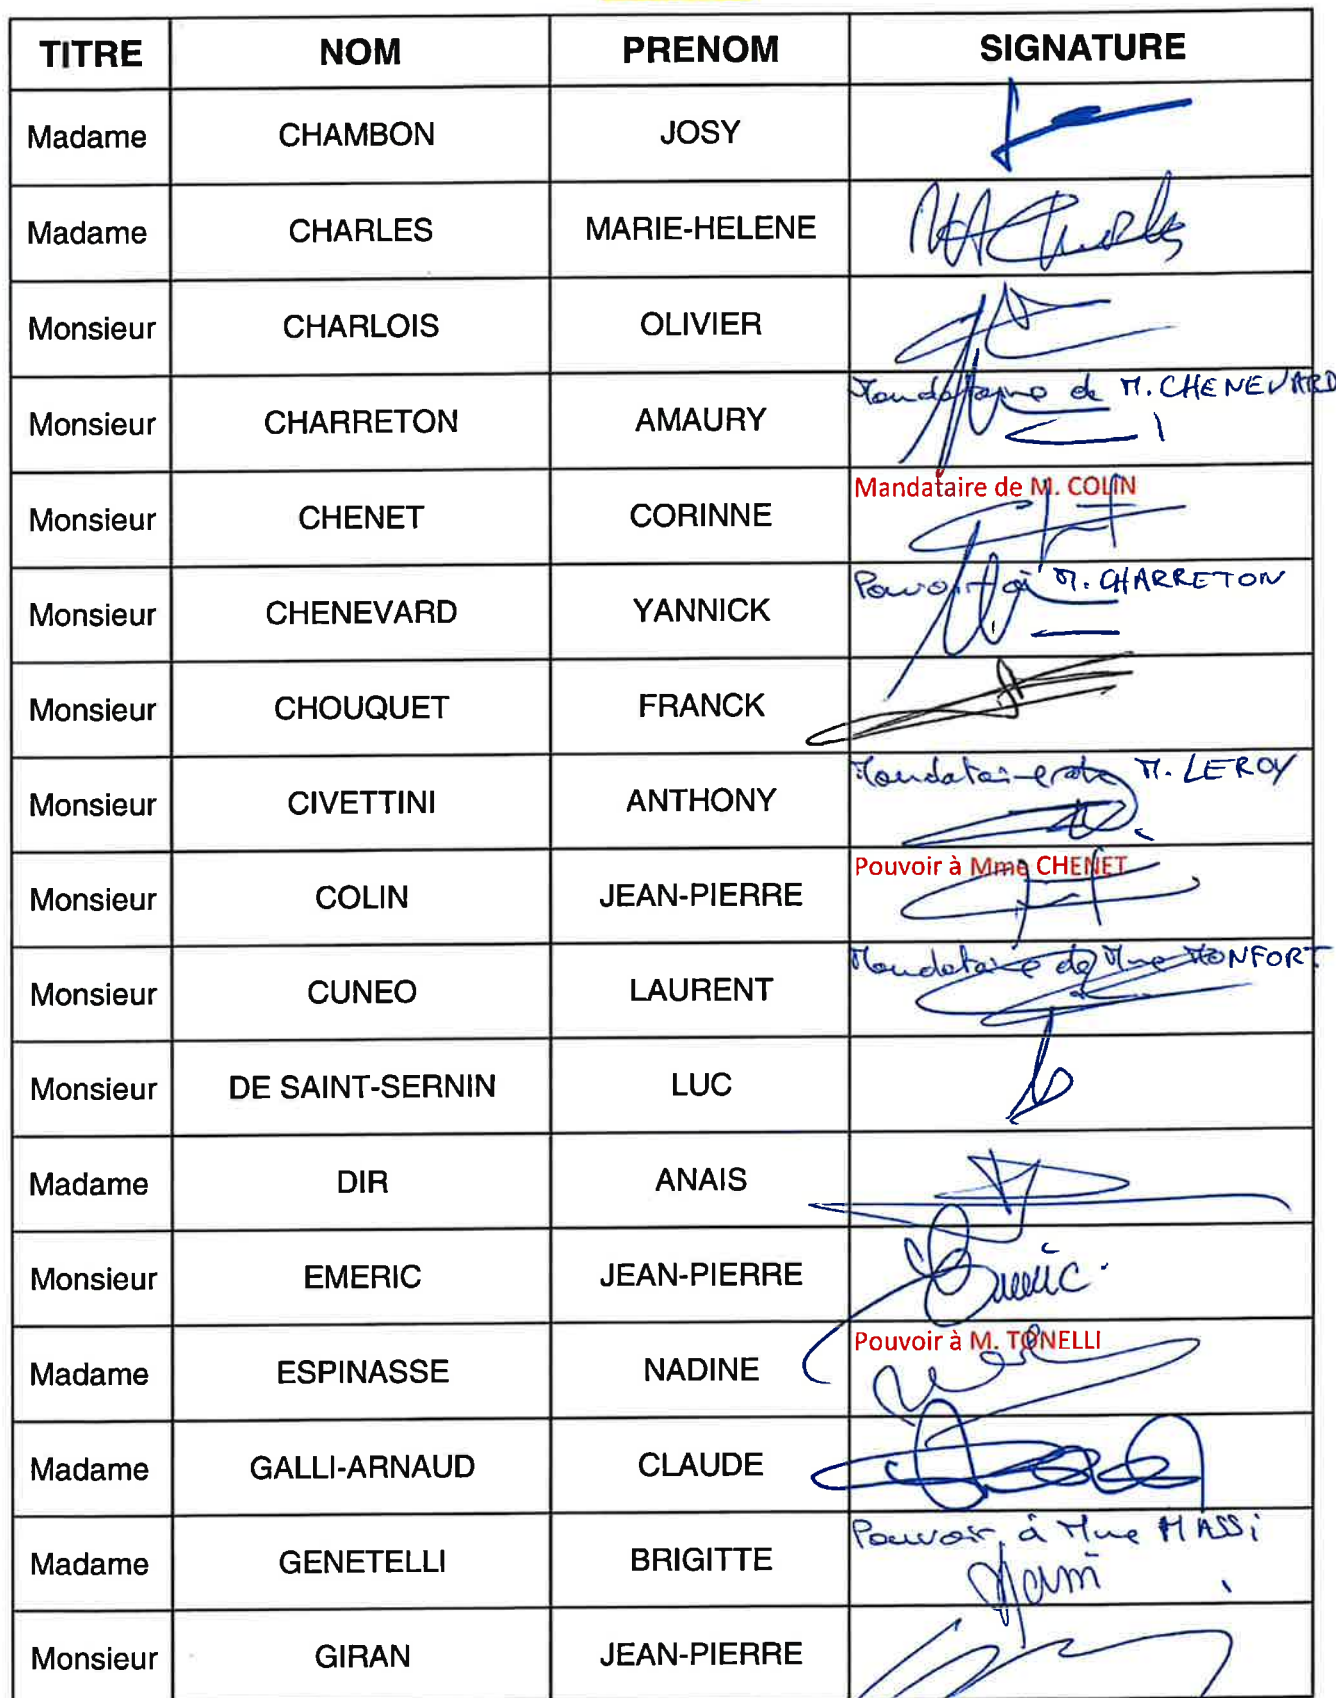 TITRE NOM PRENOM SIGNATURE
Madame CHAMBON JOSY
Madame CHARLES MARIE-HELENE MH Charles
Monsieur CHARLOIS OLIVIER
Monsieur CHARRETON AMAURY Mandataire de M. CHENEVARD
Monsieur CHENET CORINNE Mandataire de M. COLIN
Monsieur CHENEVARD YANNICK Pouvoir à M. CHARRETON
Monsieur CHOUQUET FRANCK
Monsieur CIVETTINI ANTHONY Mandataire de M. LEROY
Monsieur COLIN JEAN-PIERRE Pouvoir à Mme CHENET
Monsieur CUNEO LAURENT Mandataire de Mme MONFORT
Monsieur DE SAINT-SERNIN LUC
Madame DIR ANAIS
Monsieur EMERIC JEAN-PIERRE Emeric
Madame ESPINASSE NADINE Pouvoir à M. TONELLI
Madame GALLI-ARNAUD CLAUDE
Madame GENETELLI BRIGITTE Pouvoir à Mme MASSI
Monsieur GIRAN JEAN-PIERRE